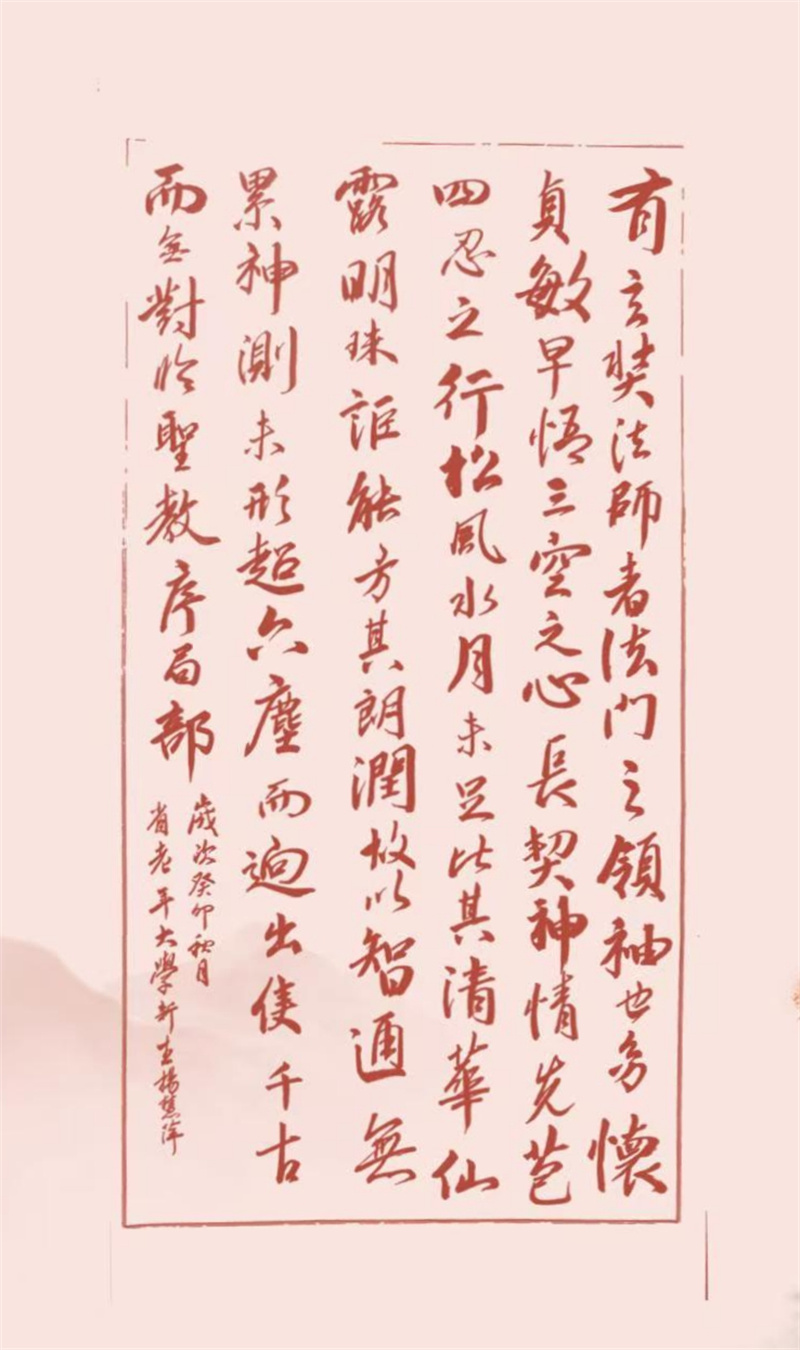 有玄奘法師者法門之領袖也幼懷
貞敏早悟三空之心長契神情先苞
四忍之行松風水月未足比其清華仙
露明珠詎能方其朗潤故以智通無
累神測未形超六塵而迥出隻千古
而無對 聖教序局部
歲次癸卯秋月
省老年大學新生楊慧萍